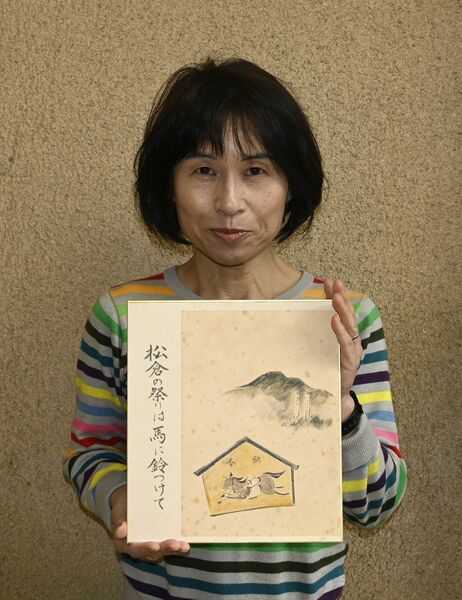 松倉の祭りは馬に鈴つけて
奉納